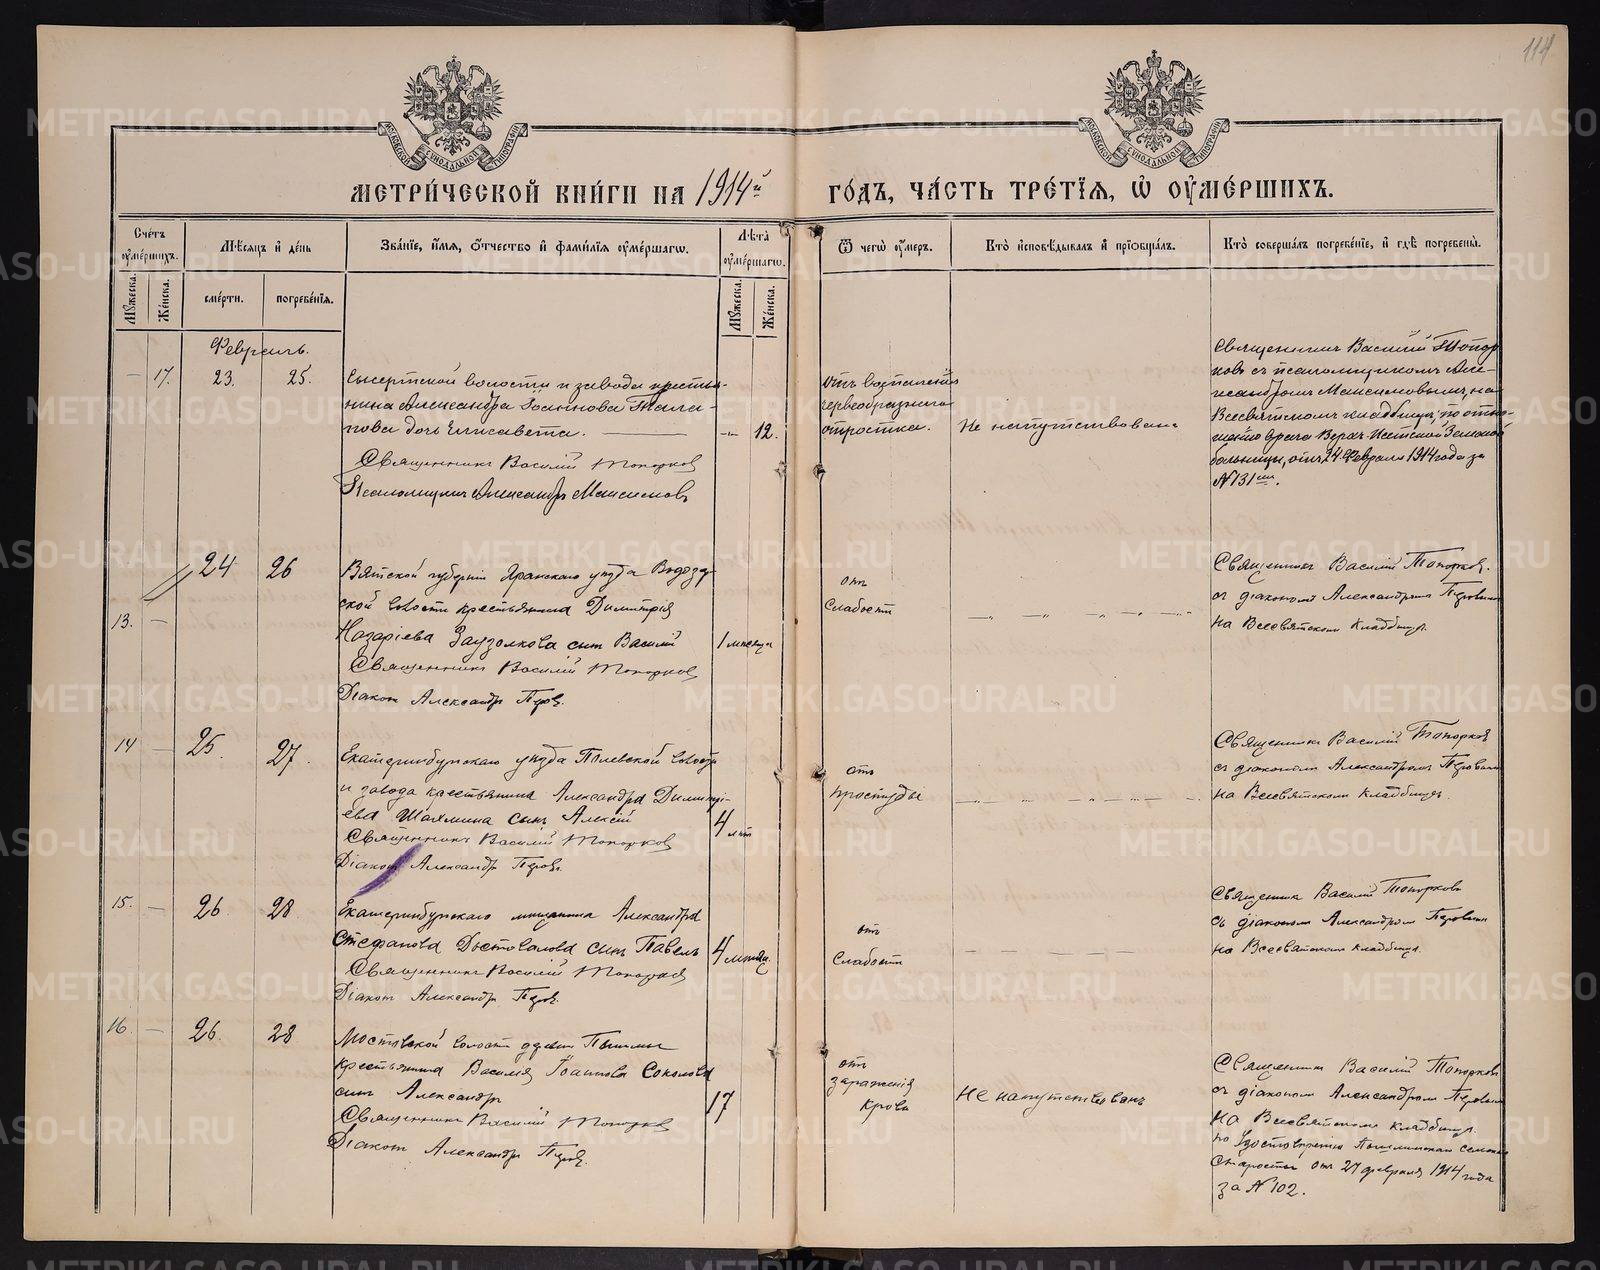 114
МОСКОВСКОЙ СѴНОДАЛЬНОЙ ТИПОГРАФІИ
МОСКОВСКОЙ СѴНОДАЛЬНОЙ ТИПОГРАФІИ
МЕТРИ́ЧЕСКОЙ КНИ́ГИ НА 1914й ГО́ДЪ, ЧА́СТЬ ТРЕ́ТІѦ, Ѡ҆ ОУ҆МЕ́РШИХЪ.
Сче́тъ оу҆ме́ршихъ.
Мѣ́сѧцъ и҆ де́нь
Зва́нїе, и҆́мѧ, ѻ҆́тчество и҆ фами́лїѧ оу҆ме́ршагѡ.
Лѣ́та оу҆ме́ршагѡ.
Ѿ чегѡ̀ оу҆́меръ.
Кто̀ и҆сповѣ́дывалъ и҆ прїѡбща́лъ.
Кто̀ соверша́лъ погребе́нїе, и҆ гдѣ̀ погребены̀.
Мꙋ́жеска.
Же́нска.
сме́рти.
погребе́нїѧ.
Мꙋ́жеска.
Же́нска.
Февраль.
— 17. 23. 25.
Сысертской волости и завода крестья-
нина Александра Іоаннова Тала-
нова дочь Елисавета.
— 12.
Священникъ Василій Топорков
Псаломщикъ Александръ Максимовъ
Отъ воспаленія
червеобразнаго
отростка.
Не напутствована
Священникъ Василій Топор
ковъ съ псаломщикомъ Але-
ксандромъ Максимовымъ, на
Всесвятскомъ кладбищѣ, по отно-
шенію врача Верхъ-Исетской Земской
больницы, отъ 24 Февраля 1914 года за
№131мъ.
13. — 24 26
Вятской губерніи Яранскаго уѣзда
ской волости крестьянина Димитрія
Назаріева Заузолкова сын Василій
1 мѣсяца
Священникъ Василій Топорков
Діакон Александръ Перов.
отъ
слабости
— „ — „ — „ —
Священникъ Василій Топорков.
съ діакономъ Александромъ Перовымъ
на Всесвятском кладбищѣ.
14 — 25. 27.
Екатеринбургскаго уѣзда Полевской волости
и завода крестьянина Александра Димитрі-
ева Шахмина сынъ Алексій
4 лѣт
Священникъ Василій Топорков
Діакон Александръ Перовъ.
отъ
простуды
— „ — „ — „ —
Священникъ Василій Топорков
съ діакономъ Александромъ Перовымъ
на Всесвятском кладбищѣ.
15. — 26. 28.
Екатеринбургскаго мѣщанина Александра
Стефанова Достовалова сын Павелъ
4 мѣсяц.
Священникъ Василій Топорков
Діакон Александръ Перов.
отъ
слабости
— — — —
Священник Василій Топорковъ
съ діакономъ Александром Перовымъ
на Всесвятском кладбищѣ.
16. — 26. 28
Мостовской волости деревни Пышмы
крестьянина Василія Іоаннова Соколова
сынъ Александръ
17
Священникъ Василій Топорков
Діакон Александръ Перов.
отъ
зараженія
крови
Не напутствованъ
Священникъ Василій Топорков
съ діаконом Александром Перовым
на Всесвятском кладбищѣ.
по удостовѣренію Пышминскаго сельскаго
старосты отъ 27 февраля 1914 года
за №102.
METRIKI.GASO-URAL.RU